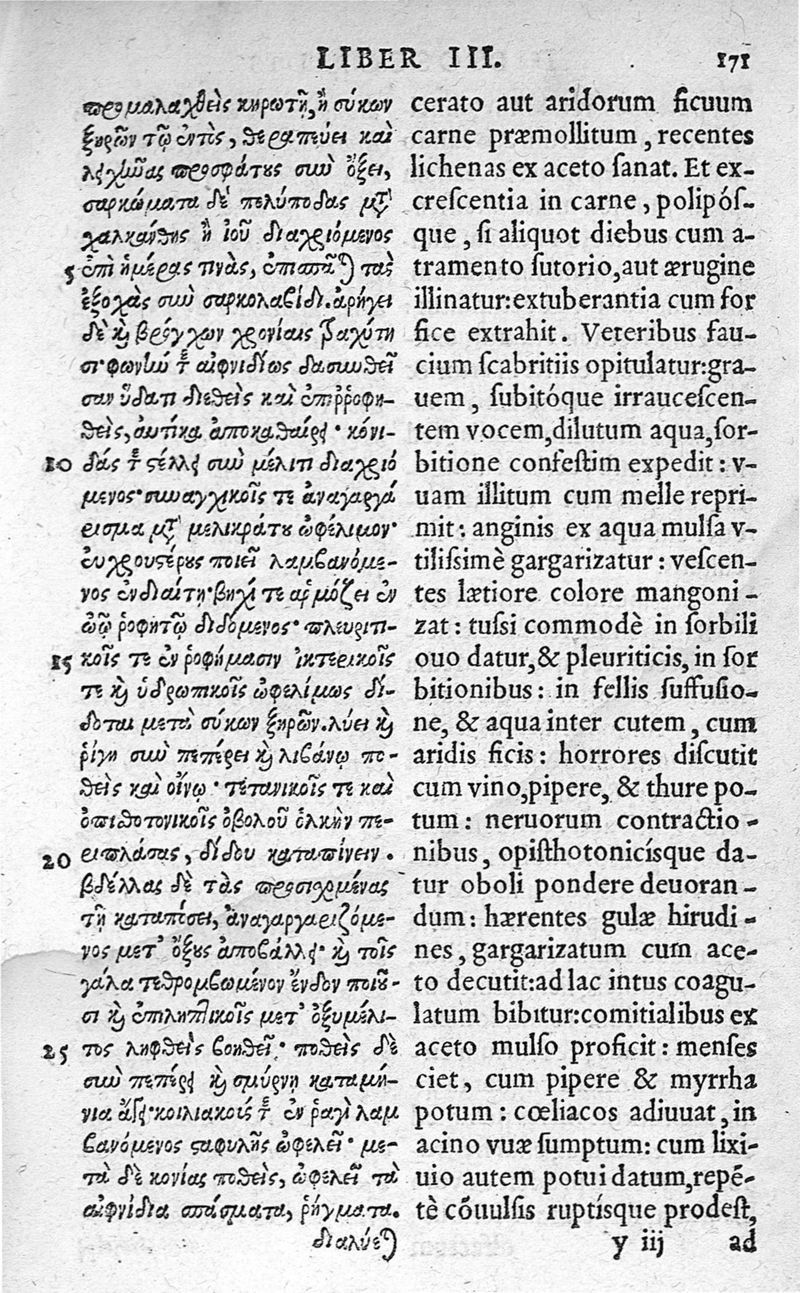 LIBER III. 171
προμαλαχθεὶς κηρωτῇ, ἢ σύκων
ξηρῶν τῷ ἐντὸς, θεραπεύει καὶ
λειχῆνας προσφάτους σὺν ὄξει,
σαρκώματα δὲ πελύποδας μετὰ
χαλκάνθης ἢ ἰοῦ διαχριόμενος
5 ἐπὶ ἡμέρας τινὰς, ἐπισπᾶται τὰς
ἐξοχὰς σὺν σαρκολαβίδι. ἀρήγει
δὲ καὶ βρόγχων χρονίαις τραχύτη
σι· φωνὴν τε αἰφνιδίως δασυνθεῖ
σαν ὕδατι διεθεὶς καὶ ἐπιῤῥοφη-
θεὶς, αὐτίκα ἀποκαθαίρει· κιονί-
10 δάς τε στέλλει σὺν μέλιτι διαχριό
μενος· συναγχικοῖς τε ἀναγαργά
ρισμα μετὰ μελικράτου ὠφέλιμον·
εὐχρουστέρους ποιεῖ λαμβανόμε-
νος ἐν διαίτῃ· βηχί τε ἁρμόζει ἐν
ὠῷ ῥοφητῷ διδόμενος· πλευριτι-
15 κοῖς τε ἐν ῥοφήμασιν ἰκτερικοῖς
τε καὶ ὑδρωπικοῖς ὠφελίμως δί-
δοται μετὰ σύκων ξηρῶν. λύει καὶ
ῥίγη σὺν πεπέρει καὶ λιβάνῳ πο-
θεὶς καὶ οἴνῳ· τετανικοῖς τε καὶ
ὀπισθοτονικοῖς ὀβολοῦ ὁλκὴν πε-
20 ριπλάσας, δίδου καταπίνειν.
βδέλλας δὲ τὰς προσισχομένας
τῇ καταπόσει, ἀναγαργαριζόμε-
νος μετ' ὄξους ἀποβάλλει· καὶ τοῖς
γάλα τεθρομβωμένον ἔνδον ποιοῦ-
σι καὶ ἐπιληπτικοῖς μετ' ὀξυμέλι-
25 τος ληφθεὶς βοηθεῖ· ποθεὶς δὲ
σὺν πεπέρει καὶ σμύρνῃ καταμή-
νια ἄγει· κοιλιακούς τε ἐν ῥαγὶ λαμ
βανόμενος σταφυλῆς ὠφελεῖ· με-
τὰ δὲ κονίας ποθεὶς, ὠφελεῖ τὰ
αἰφνίδια σπάσματα, ῥήγματα.
διαλύεται
cerato aut aridorum ficuum
carne præmollitum, recentes
lichenas ex aceto ſanat. Et ex-
creſcentia in carne, polipóſ-
que, ſi aliquot diebus cum a-
tramento ſutorio, aut ærugine
illinatur: extuberantia cum for
fice extrahit. Veteribus fau-
cium ſcabritiis opitulatur: gra-
uem, ſubitóque irrauceſcen-
tem vocem, dilutum aqua, ſor-
bitione confeſtim expedit: v-
uam illitum cum melle repri-
mit: anginis ex aqua mulſa v-
tiliſsimè gargarizatur: veſcen-
tes lætiore colore mangoni-
zat: tuſsi commodè in ſorbili
ouo datur, & pleuriticis, in ſor
bitionibus: in fellis ſuffuſio-
ne, & aqua inter cutem, cum
aridis ficis: horrores diſcutit
cum vino, pipere, & thure po-
tum: neruorum contractio-
nibus, opiſthotonicíſque da-
tur oboli pondere deuoran-
dum: hærentes gulæ hirudi-
nes, gargarizatum cum ace-
to decutit: ad lac intus coagu-
latum bibitur: comitialibus ex
aceto mulſo proficit: menſes
ciet, cum pipere & myrrha
potum: cœliacos adiuuat, in
acino vuæ ſumptum: cum lixi-
uio autem potui datum, repẽ-
tè cõuulſis ruptíſque prodeſt,
y iij ad